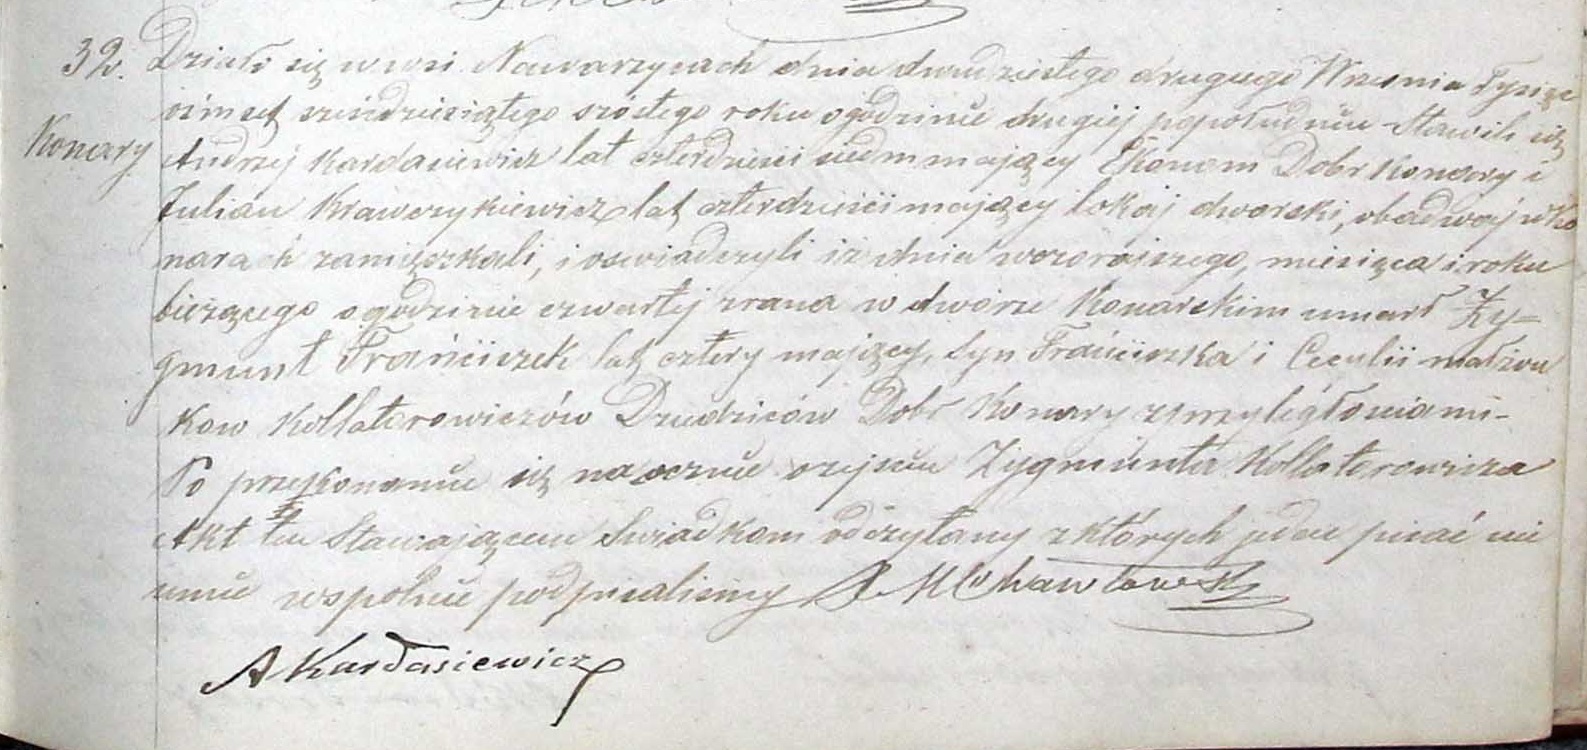 32. Działo się w wsi Nawarzycach dnia dwudziestego drugiego Września Tysiąc
Konary
óśmset sześdziesiątego szóstego roku o godzinie drugiej popołudniu Stawili się
Andrzej Kardasiewicz lat czterdzieści siedm mający Ekonom Dobr Konary i
Julian Krawczykiewicz lat czterdzieści mający lokaj dworski, obadwaj w Ko
narach zamięszkali, i oswiadczyli iż dnia wczorajszego, miesiąca i roku
bieżącego o godzinie czwartej zrana w dworze Konarskim umarł Zy=
gmunt Frańciszek lat cztery mający, syn Frańciszka i Cecylii małżon
kow Kollatorowiczów Dziedziców Dobr Konary z przyległościami.
Po przekonaniu się naocznie o zejsciu Zygmunta Kollatorowicza
Akt ten Stawającem Swiadkom odczytany z których jeden pisać nie
umie wspolnie podpisalismy
A Kardasiewicz